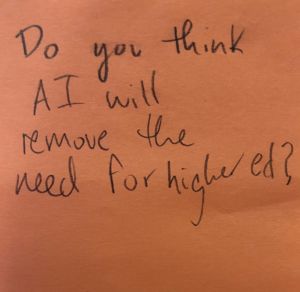 Do you think
AI will
remove the
need for higher ed?